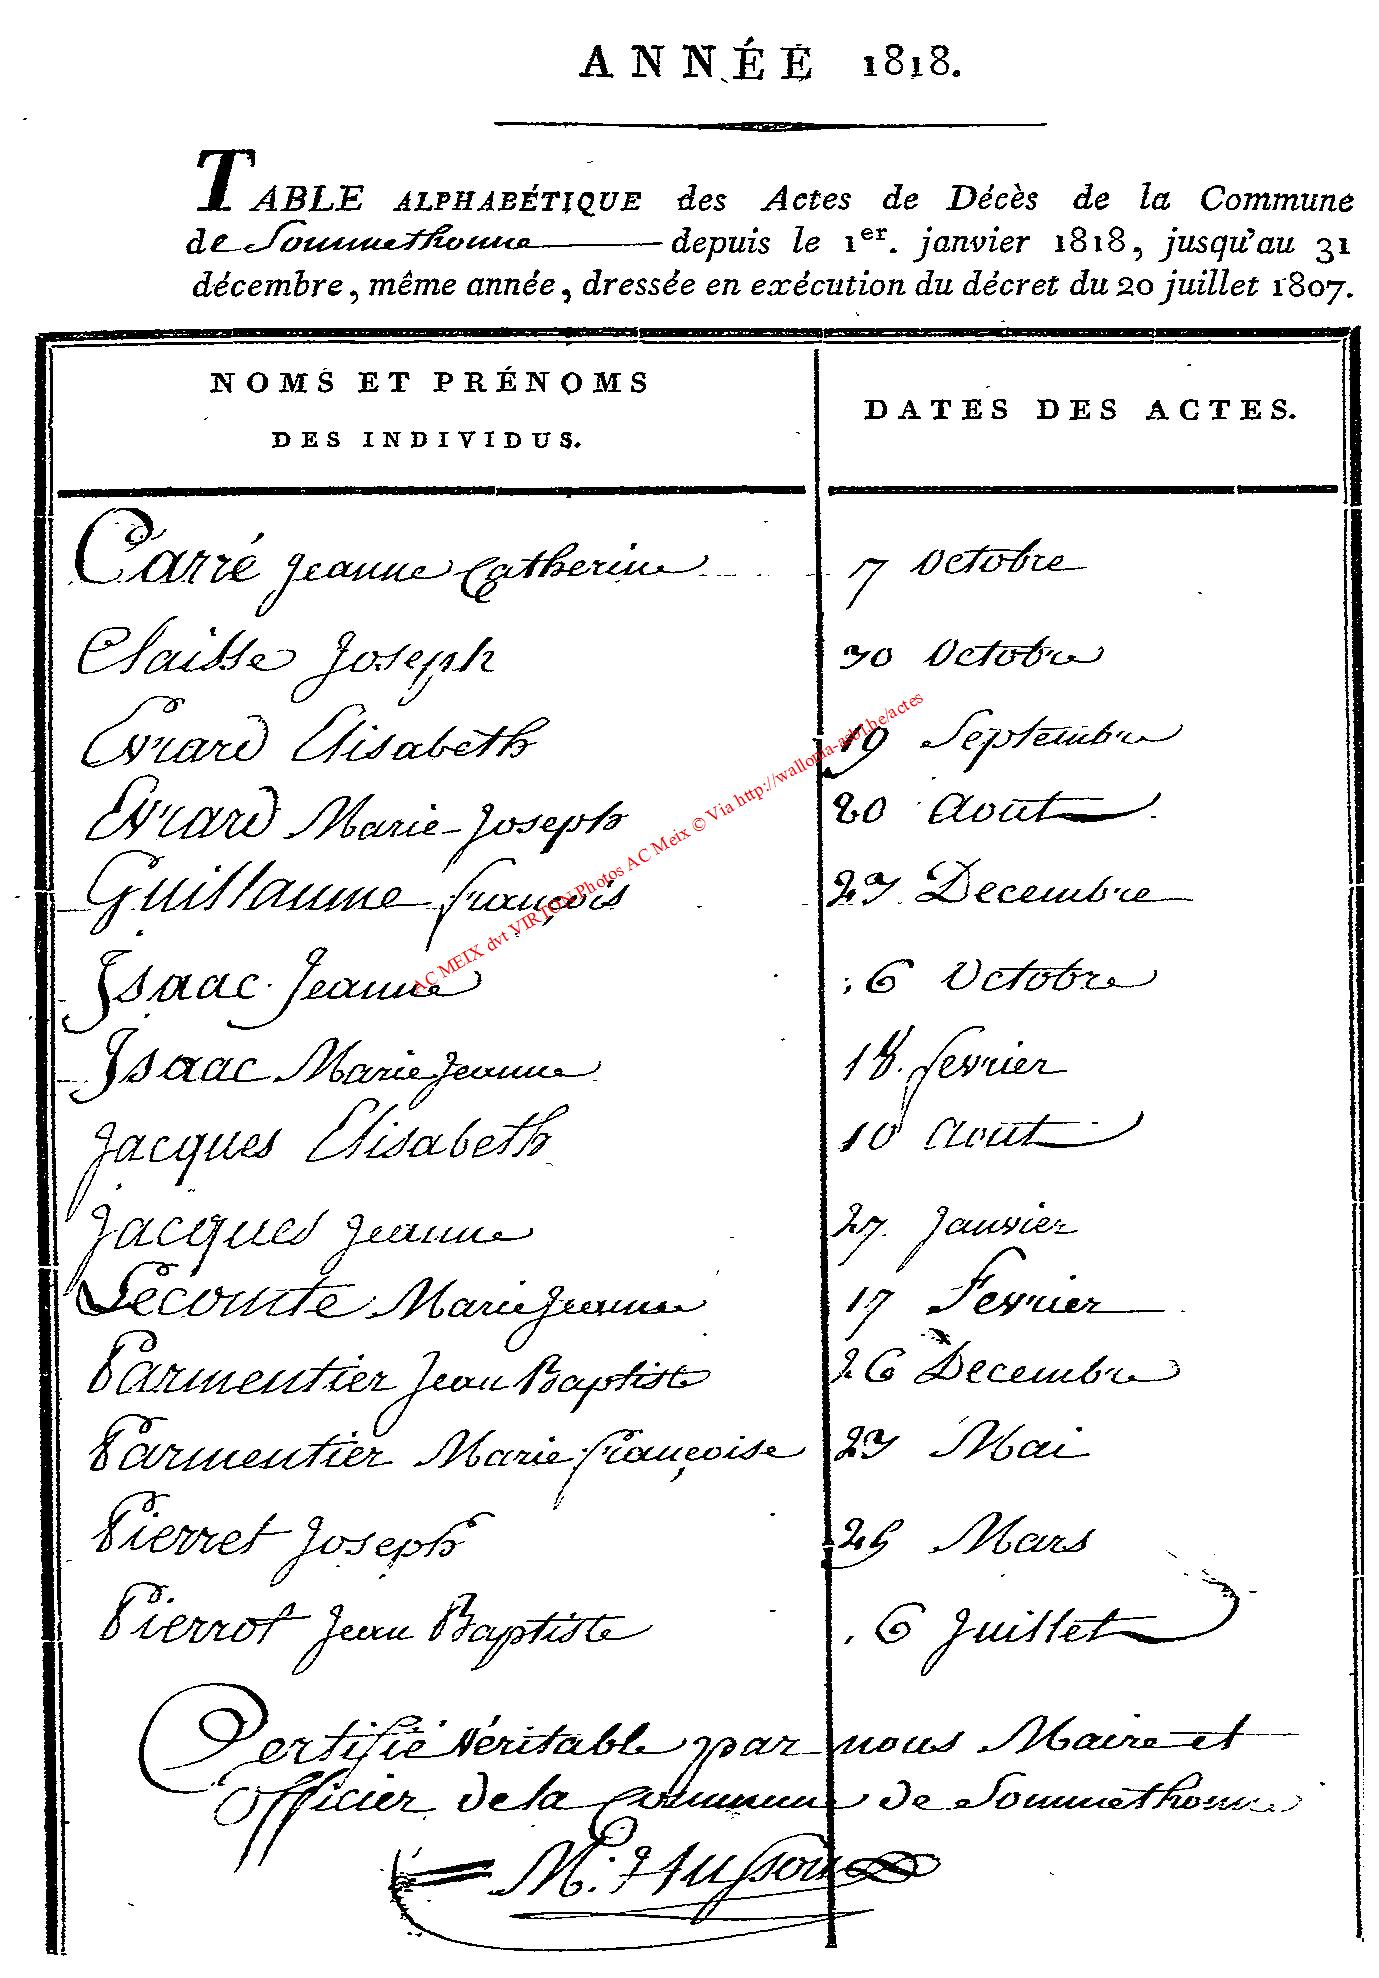 ANNÉE 1818.
TABLE ALPHABÉTIQUE des Actes de Décès de la Commune
de Sommethonne depuis le 1er. janvier 1818, jusqu'au 31
décembre, même année, dressée en exécution du décret du 20 juillet 1807.
NOMS ET PRÉNOMS
DES INDIVIDUS.
DATES DES ACTES.
Carré Jeanne Catherine 7 Octobre
Claisse Joseph 30 Octobre
Evrard Elisabeth 19 Septembre
Evrard Marie-Joseph 20 Aout
Guillaume françois 23 Decembre
Isaac Jeanne 6 Octobre
Isaac Marie Jeanne 18 fevrier
Jacques Elisabeth 10 Aout
Jacques Jeanne 27 Janvier
Lecomte Marie Jeanne 17 Fevrier
Parmentier Jean Baptiste 26 Decembre
Parmentier Marie françoise 23 Mai
Pierret Joseph 25 Mars
Pierrot Jean Baptiste 6 Juillet
Certifié véritable par nous Maire et
Officier de la Commune de Sommethonne
M. Husson
AC MEIX dvt VIRTON Photos AC Meix © Via http://wallonia-asbl.be/actes